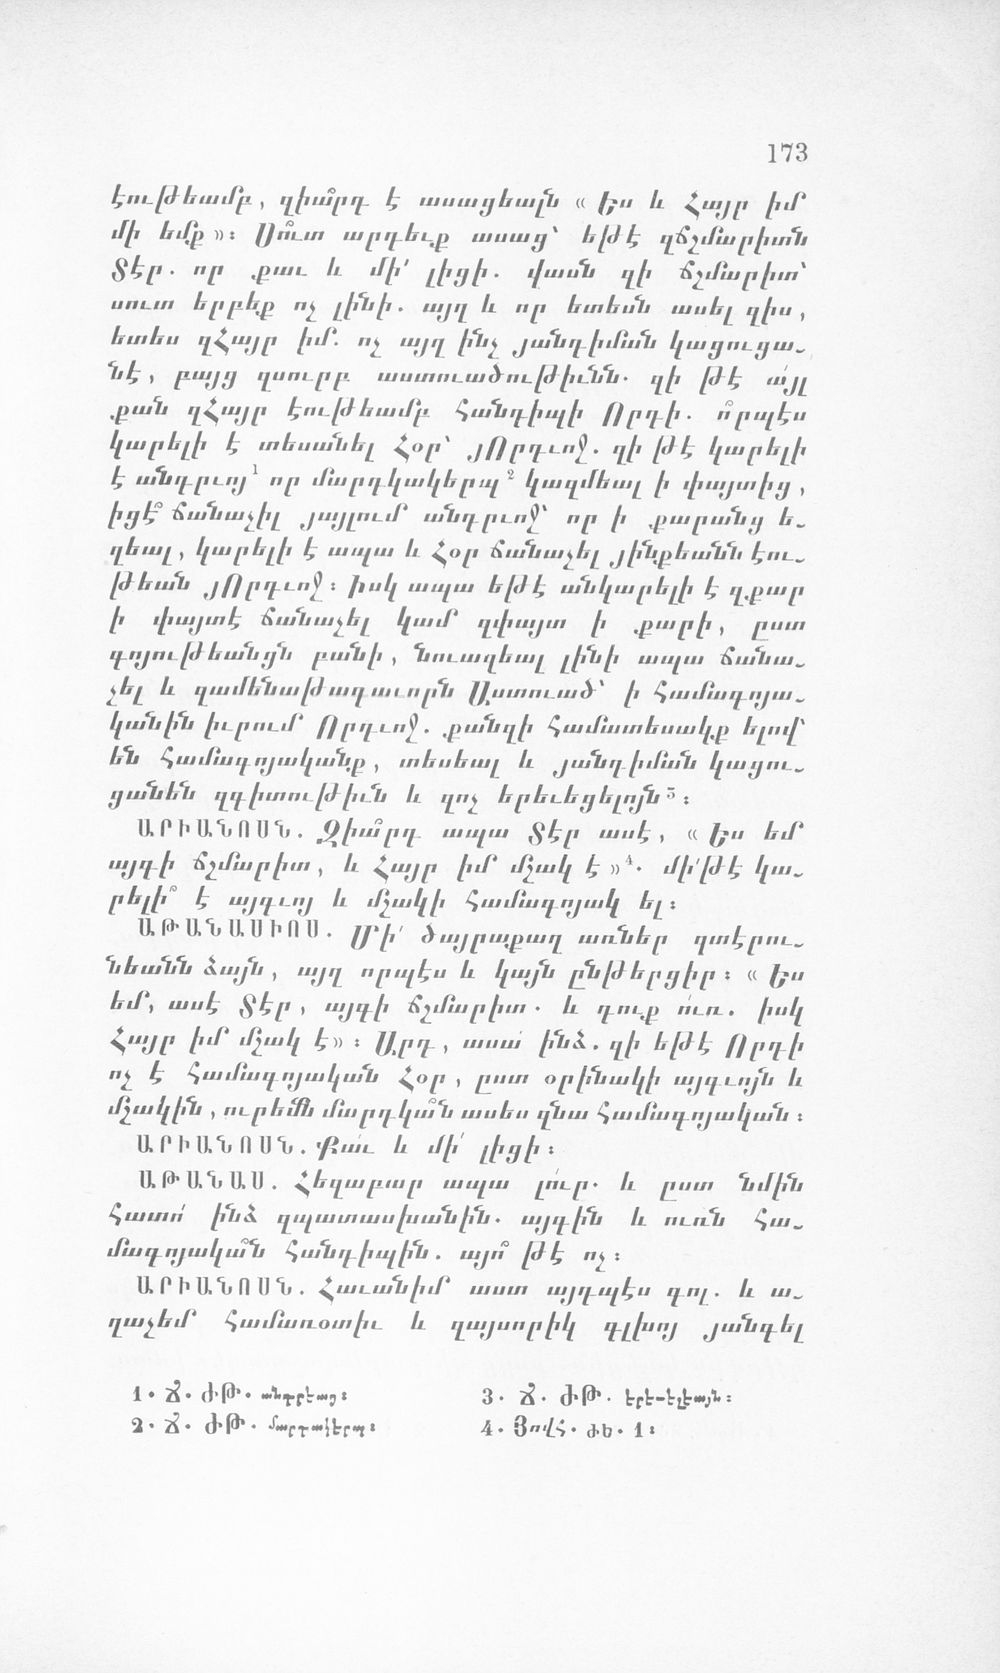 173
էութեամբ, զիա՞րդ է ասացեալն « Ես և Հայր իմ
մի եմք »։ Սո՞ւտ արդեւք ասաց՝ եթէ զճշմարիտն
Տէր. որ քաւ և մի՛ լիցի. վասն զի ճշմարիտ՝
սուտ երբեք ոչ լինի. այղ և որ ետեսն ասել զիս,
ետես զՀայր իմ. ոչ այղ ինչ յանդիման կացուցա-
նէ, բայց զսուրբ աստուածութիւնն. զի թէ ա՛յլ
քան զՀայր էութեամբ հանդիպի Որդի. ո՞րպէս
կարելի է տեսանել Հօր՝ յՈրդւոջ. զի թէ կարելի
է անդրւոյ¹ որ մարդկակերպ² կազմեալ ի փայտից,
իցէ՞ ճանաչիլ յայլում անդրւոջ՝ որ ի քարանց ե-
ղեալ, կարելի է ապա և Հօր ճանաչել յինքեանն էու-
թեան յՈրդւոջ։ Իսկ ապա եթէ անկարելի է զքար
ի փայտէ ճանաչել կամ զփայտ ի քարի, ըստ
գոյութեանցն բանի, նուազեալ լինի ապա ճանա-
չել և զամենաթագաւորն Աստուած՝ ի համագոյա-
կանին իւրում Որդւոջ. քանզի համատեսակք ելով՝
են համագոյականք, տեսեալ և յանդիման կացու-
ցանեն զգիտութիւն և զոչ երեւեցելոյն³։
ԱՐԻԱՆՈՍՆ. Զիա՞րդ ապա Տէր ասէ, « Ես եմ
այգի ճշմարիտ, և Հայր իմ մշակ է »⁴. մի՛թէ կա-
րելի՞ է այգւոյ և մշակի համագոյակ ել։
ԱԹԱՆԱՍԻՈՍ. Մի՛ ծայրաքաղ առներ զտէրու-
նեանն ձայն, այղ որպէս և կայն ընթերցիր։ « Ես
եմ, ասէ Տէր, այգի ճշմարիտ. և դուք ո՛ւռ. իսկ
Հայր իմ մշակ է»։ Արդ, ասա՛ ինձ. զի եթէ Որդի
ոչ է համագոյական Հօր, ըստ օրինակի այգւոյն և
մշակին, ուրեմն մարդկա՞ն ասես զնա համագոյական։
ԱՐԻԱՆՈՍՆ. Քա՛ւ և մի՛ լիցի։
ԱԹԱՆԱՍ. Հեզաբար ապա լո՛ւր. և ըստ նմին
հատո՛ ինձ զպատասխանին. այգին և ուռն հա-
մագոյակա՞ն հանդիպին. այո՞ թէ ոչ։
ԱՐԻԱՆՈՍՆ. Հաւանիմ աստ այդպէս գոլ. և ա-
ղաչեմ համառօտիւ և զայսորիկ գլխոյ յանգել
1. Ճ. ԺԹ. անդրէաց։
2. Ճ. ԺԹ. մարդակերպ։
3. Ճ. ԺԹ. երե-ելեայն։
4. Յովհ. ժե. 1։